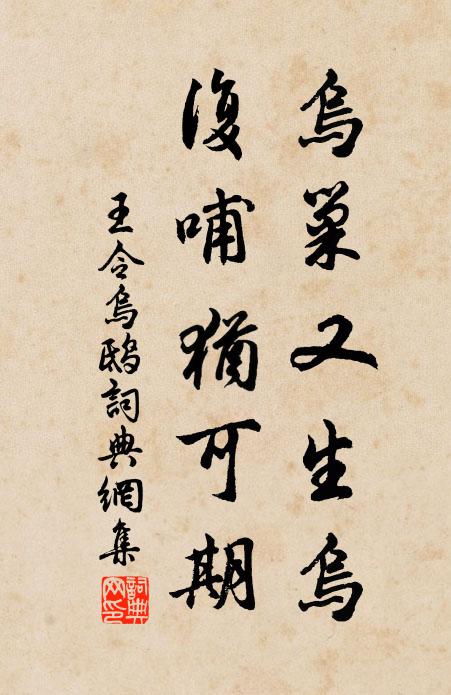 烏巢又生烏
復哺猶可期
王令烏鴟詞典網集
詞典
網印